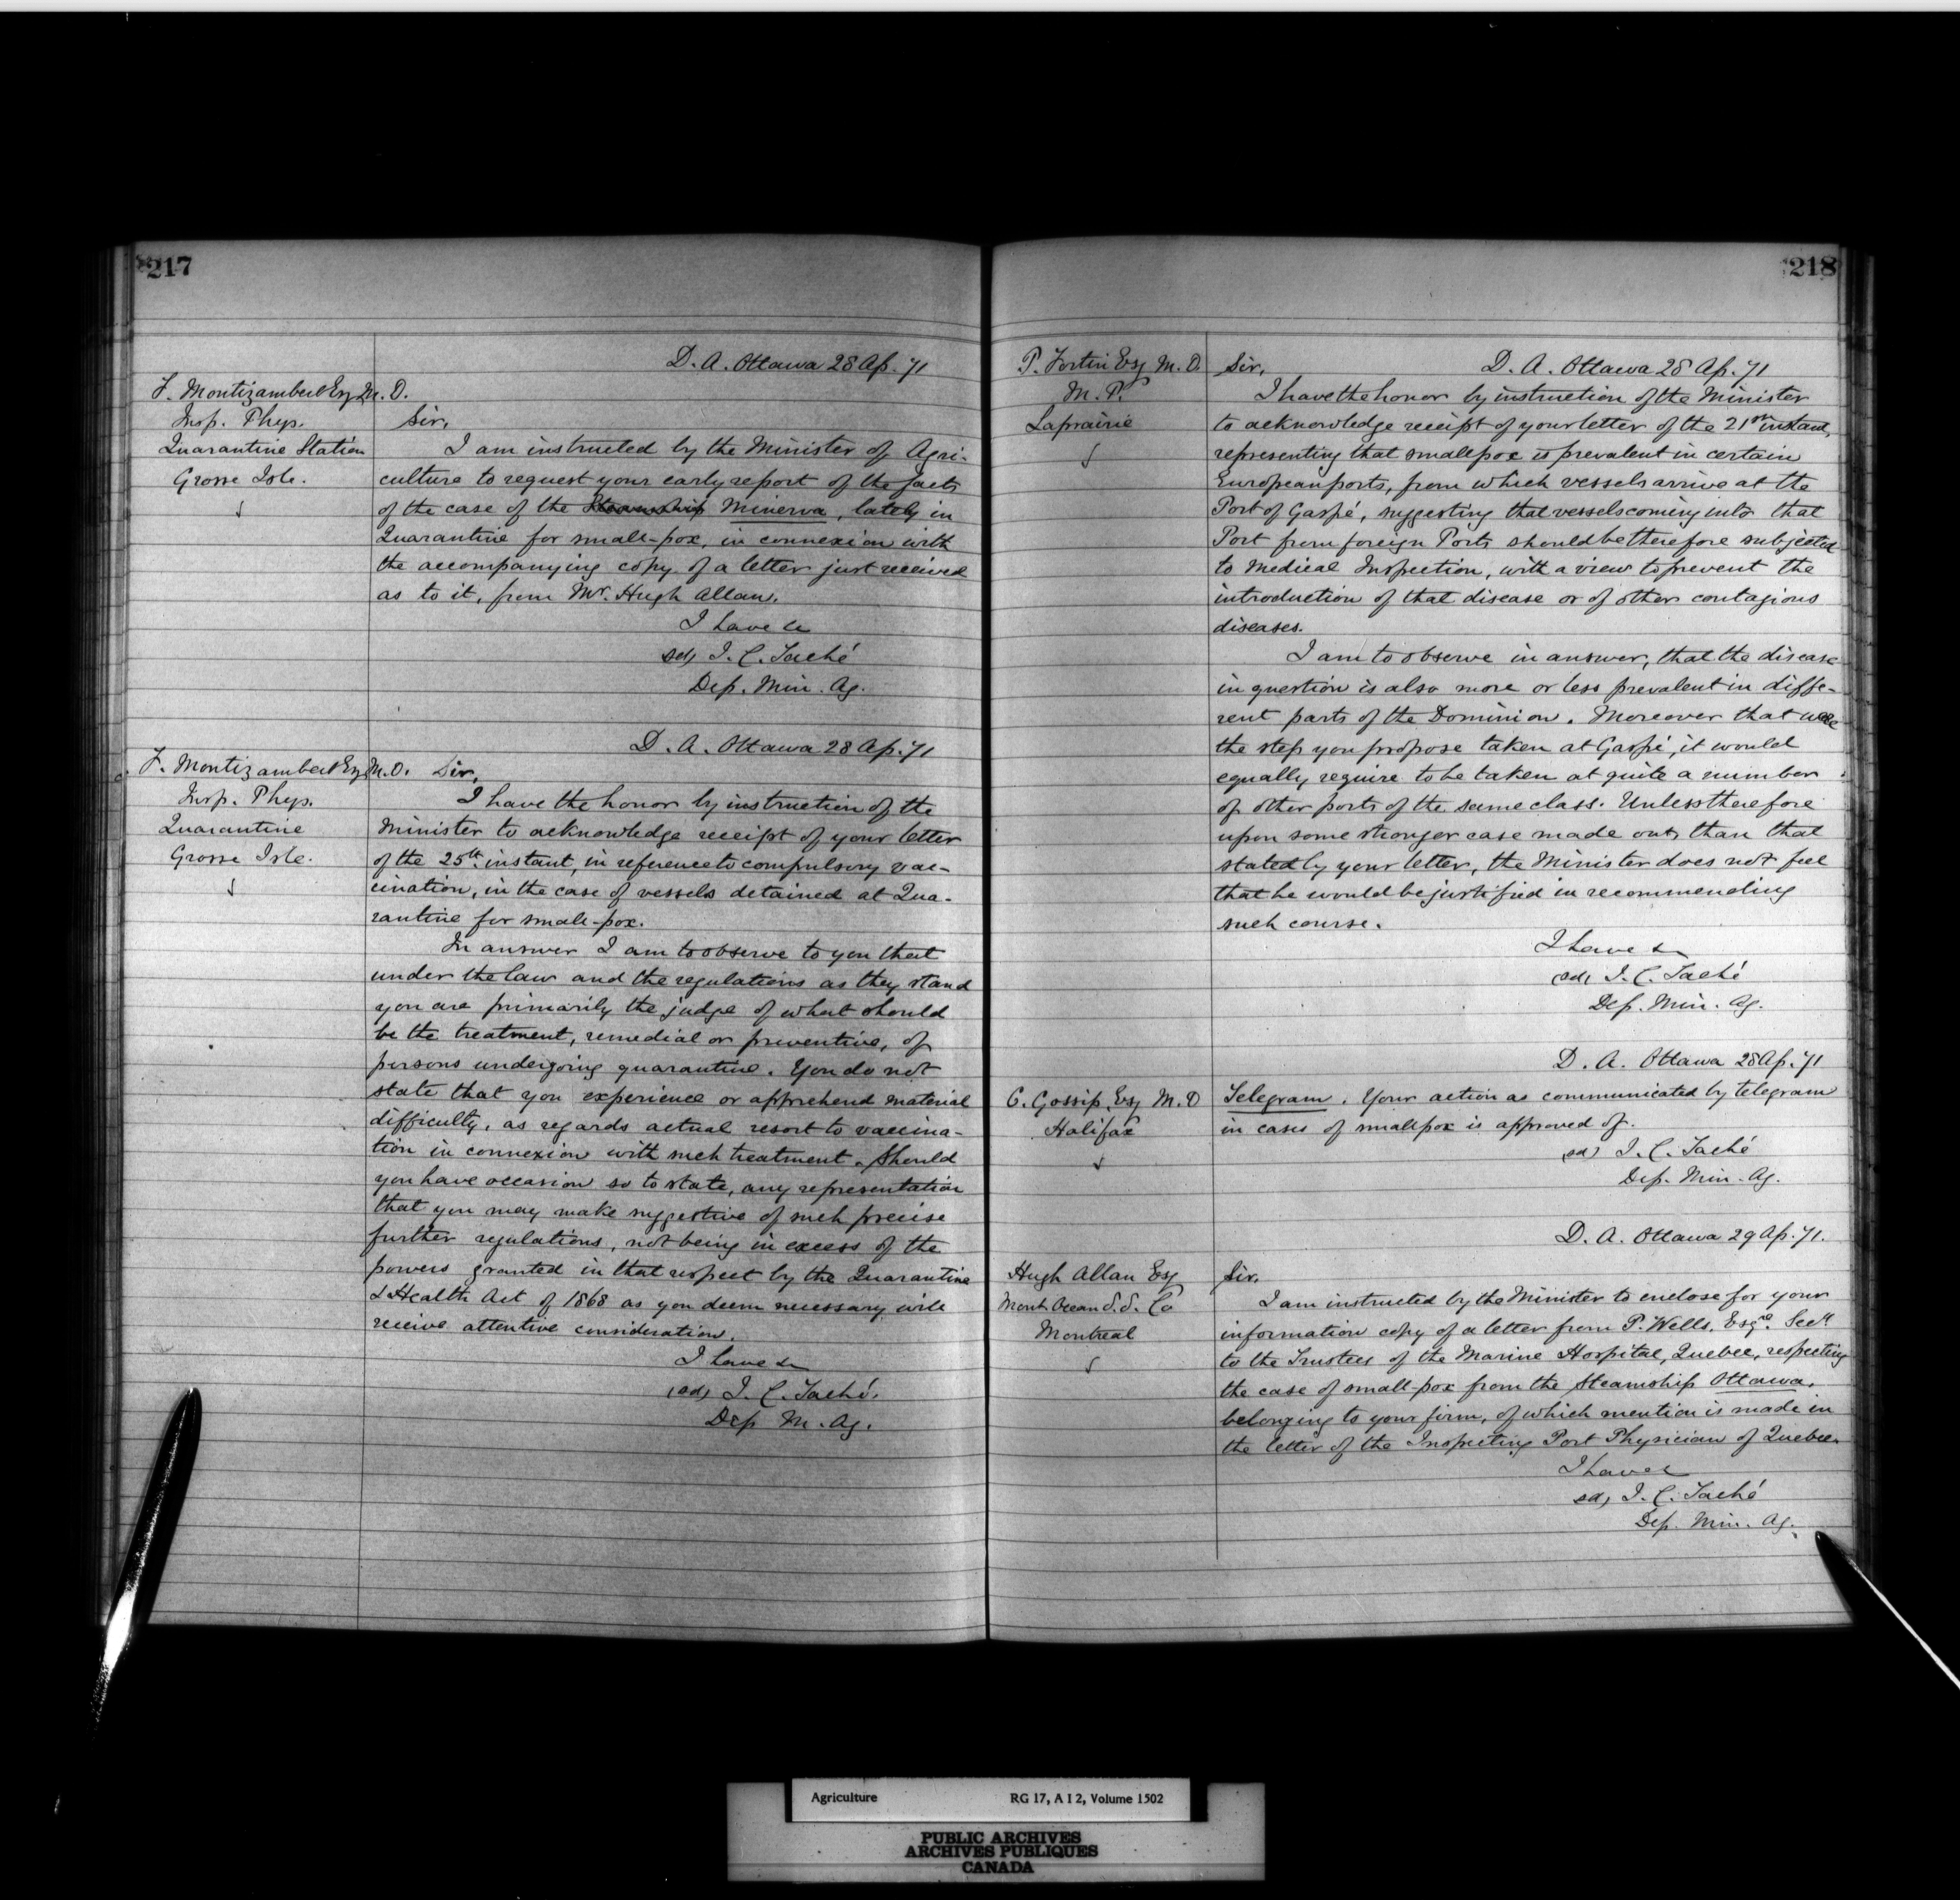 217
D. A. Ottawa 28 Ap. 71
F. Montizambert Esq M. D.
Insp. Phys.
Quarantine Station
Grosse Isle.
Sir,
I am instructed by the Minister of Agri-
culture to request your early report of the facts
of the case of the Steamship Minerva, lately in
Quarantine for small-pox, in connexion with
the accompanying copy of a letter just received
as to it, from Mr. Hugh Allan.
I have &c
sd, J. C. Taché
Dep. Min. Ag.
D. A. Ottawa 28 Ap. 71
F. Montizambert Esq M. D.
Insp. Phys.
Quarantine
Grosse Isle.
Sir,
I have the honor by instruction of the
Minister to acknowledge receipt of your letter
of the 25th instant, in reference to compulsory vac-
cination, in the case of vessels detained at Qua-
rantine for small-pox.
In answer I am to observe to you that
under the law and the regulations as they stand
you are primarily the judge of what should
be the treatment, remedial or preventive, of
persons undergoing quarantine. You do not
state that you experience or apprehend material
difficulty, as regards actual resort to vaccina-
tion in connexion with such treatment. Should
you have occasion so to state, any representation
that you may make suggestive of such precise
further regulations, not being in excess of the
powers granted in that respect by the Quarantine
& Health Act of 1868 as you deem necessary will
receive attentive consideration.
I have &c
(sd, J. C. Taché.
Dep M. Ag.
218
P. Fortin Esq M. D.
M. P.
Laprairie
Sir, D. A. Ottawa 28 Ap. 71
I have the honor by instruction of the Minister
to acknowledge receipt of your letter of the 21st instant,
representing that smallpox is prevalent in certain
European ports, from which vessels arrive at the
Port of Gaspé, suggesting that vessels coming into that
Port from foreign Ports should be therefore subjected
to Medical Inspection, with a view to prevent the
introduction of that disease or of other contagious
diseases.
I am to observe in answer, that the disease
in question is also more or less prevalent in diffe-
rent parts of the Dominion. Moreover that were
the step you propose taken at Gaspé, it would
equally require to be taken at quite a number
of other ports of the same class. Unless therefore
upon some stronger case made out, than that
stated by your letter, the Minister does not feel
that he would be justified in recommending
such course.
I have &c
(sd, J. C. Taché
Dep. Min. Ag.
D. A. Ottawa 28 Ap. 71
C. Gossip, Esq M. D
Halifax
Telegram. Your action as communicated by telegram
in cases of smallpox is approved of.
(sd) J. C. Taché
Dep. Min. Ag.
D. A. Ottawa 29 Ap. 71.
Hugh Allan Esq
Mont Ocean S. S. Co
Montreal
Sir,
I am instructed by the Minister to enclose for your
information copy of a letter from P. Wells, Esqre. Secy
to the Trustees of the Marine Hospital, Quebec, respecting
the case of small-pox from the Steamship Ottawa,
belonging to your firm, of which mention is made in
the letter of the Inspecting Port Physician of Quebec.
I have &c
sd, J. C. Taché
Dep. Min. Ag.
Agriculture RG 17, A I 2, Volume 1502
PUBLIC ARCHIVES
ARCHIVES PUBLIQUES
CANADA